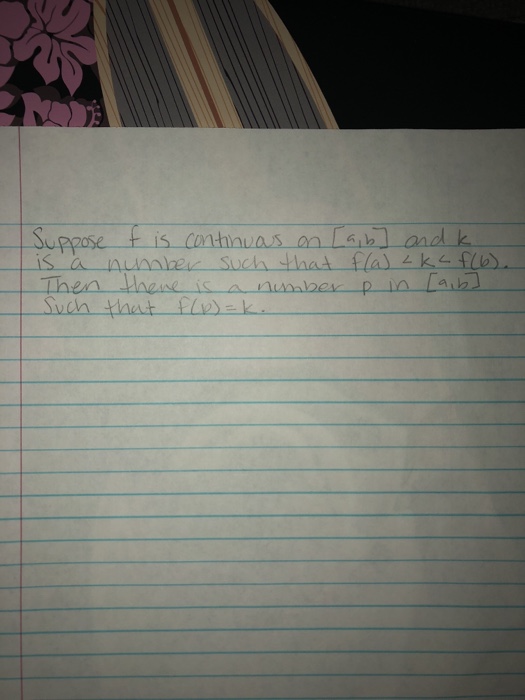 Suppose f is continuas on [a,b] and k
is a number such that f(a) < k < f(b).
Then there is a number p in [a,b]
Such that f(p)=k.